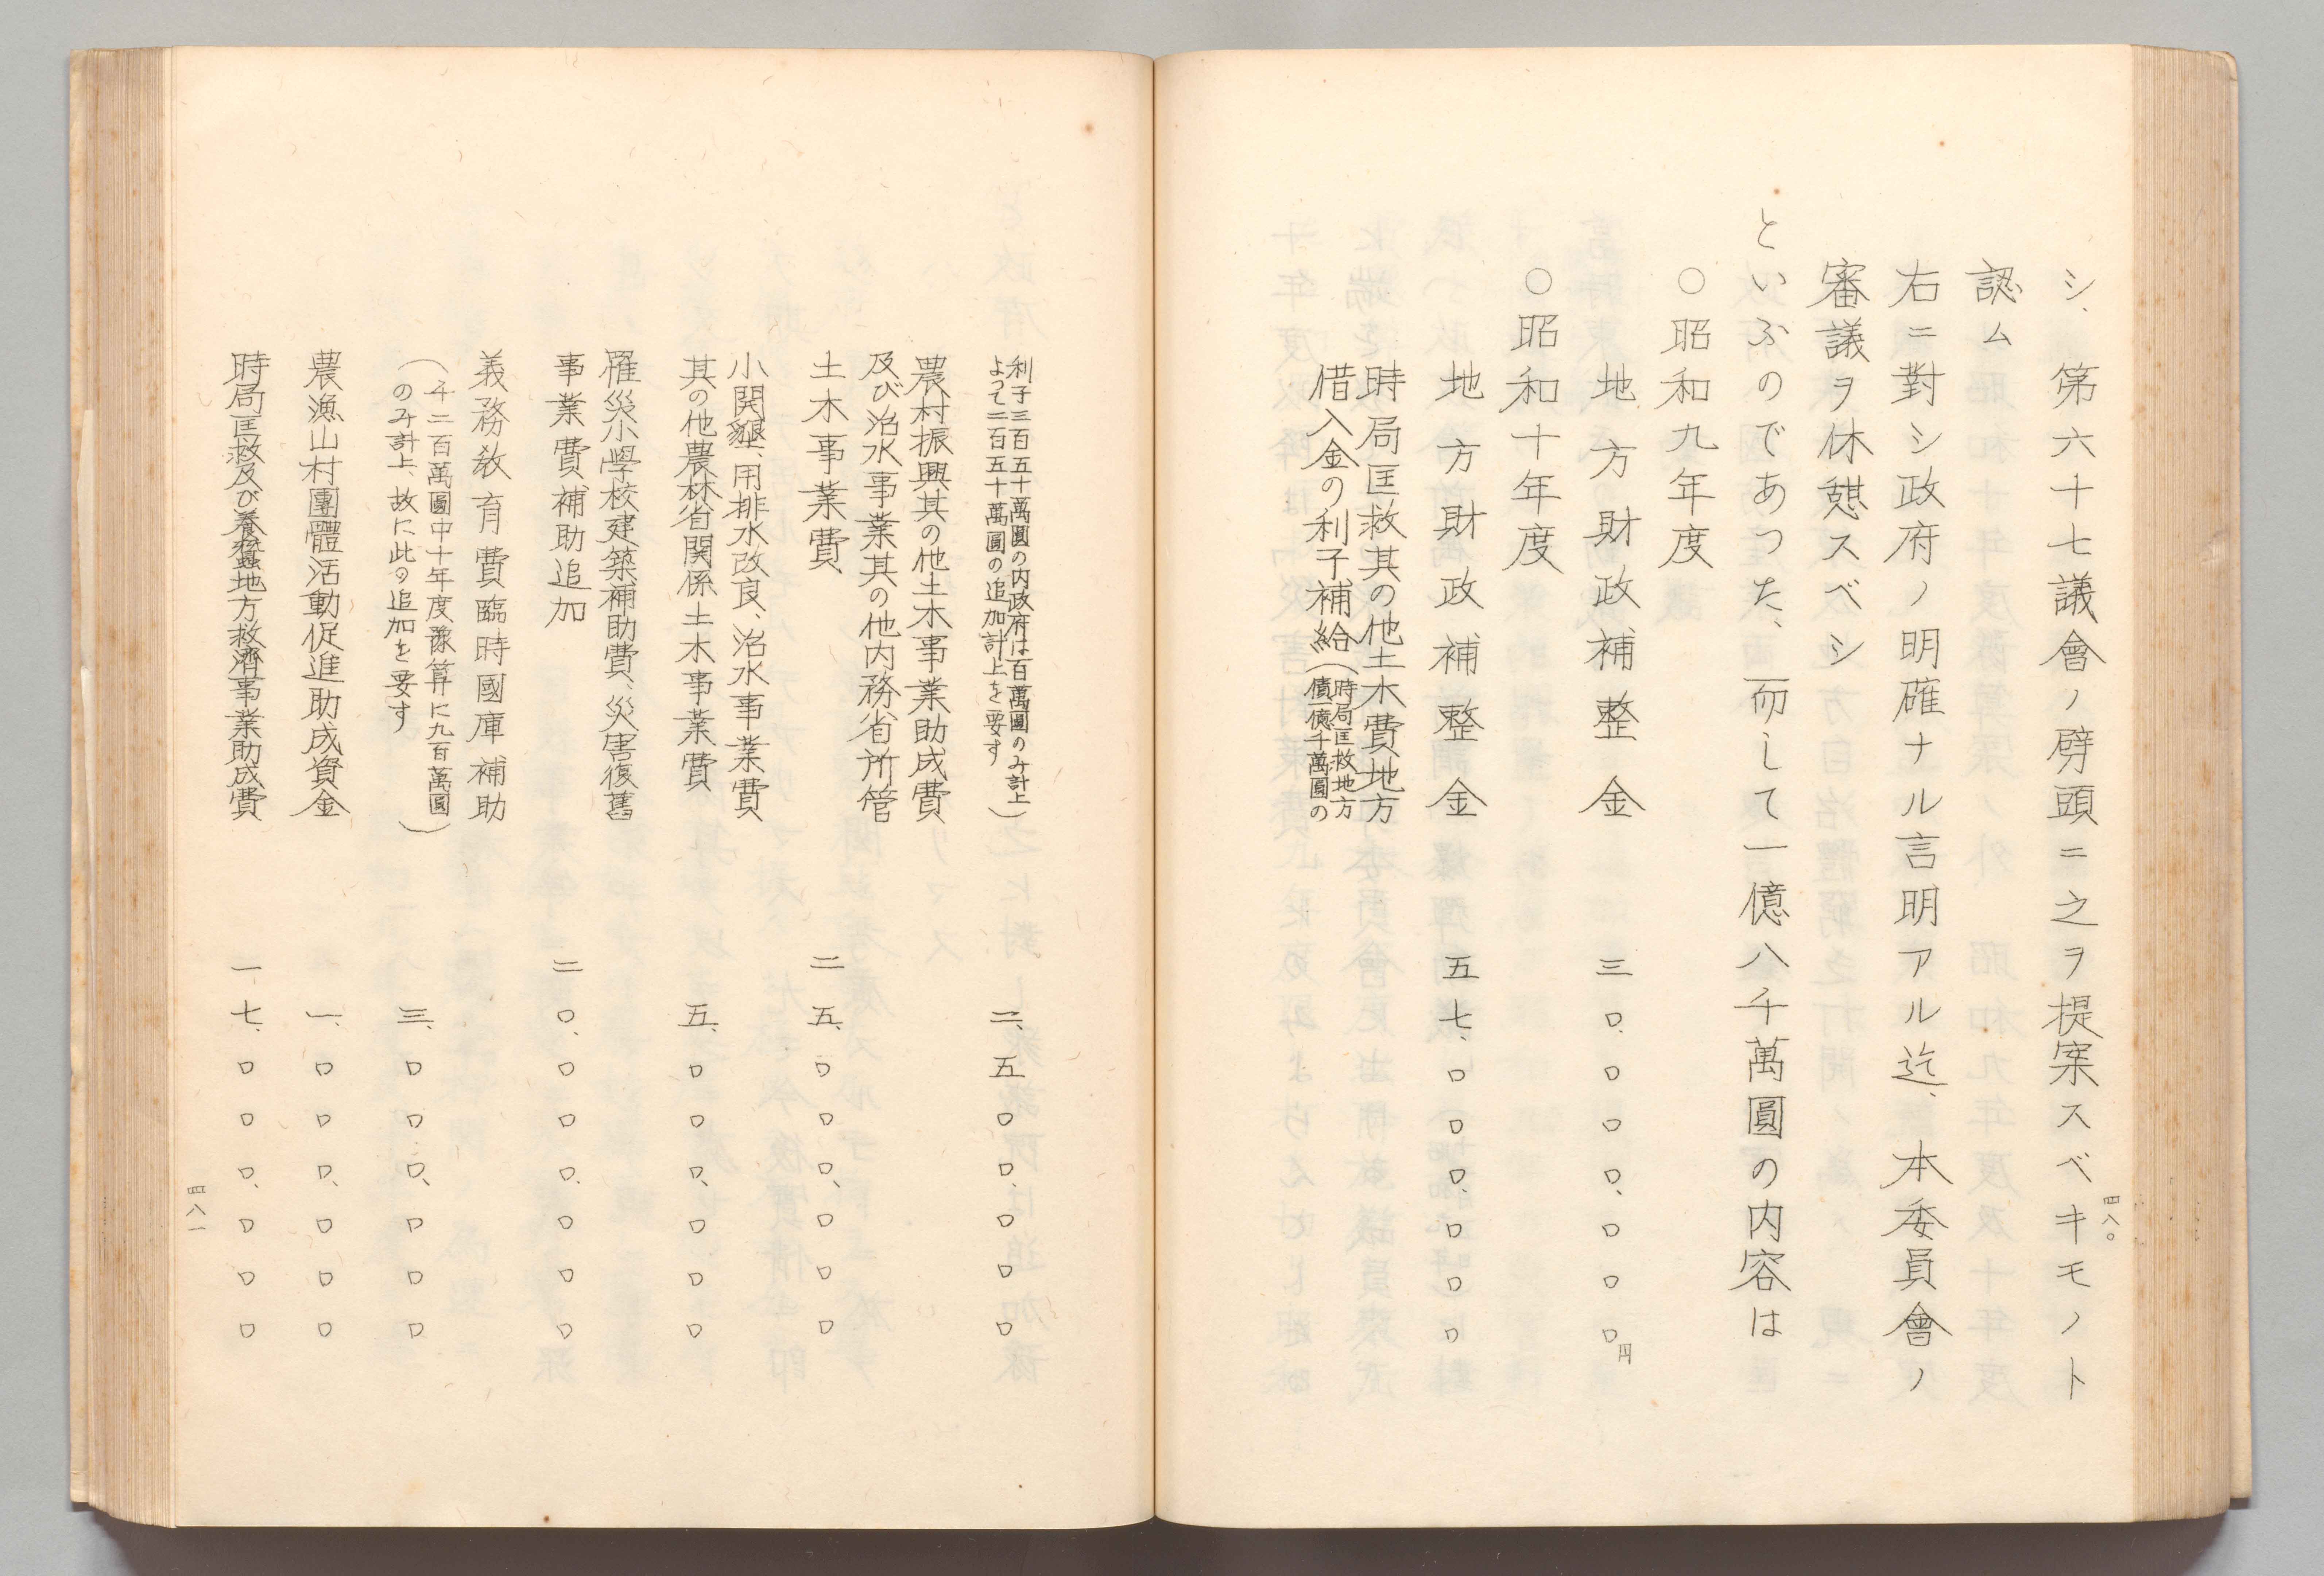 シ、第六十七議會ノ劈頭ニ之ヲ提案スベキモノト
認ム
右ニ對シ政府ノ明確ナル言明アル迄、本委員會ノ
審議ヲ休憩スベシ
といふのであつた、而して一億八千萬圓の内容は
〇昭和九年度
地方財政補整金 三〇、〇〇〇、〇〇〇円
〇昭和十年度
地方財政補整金 五七、〇〇〇、〇〇〇
時局匡救其の他土木費地方
借入金の利子補給(時局匡救地方
債一億千萬圓の
四八〇
利子三百五十萬圓の内政府は百萬圓のみ計上
よつて二百五十萬圓の追加計上を要す) 二、五〇〇、〇〇〇
農村振興其の他土木事業助成費
及び治水事業其の他内務省所管
土木事業費 二五、〇〇〇、〇〇〇
小開墾、用排水改良、治水事業費
其の他農林省関係土木事業費 五、〇〇〇、〇〇〇
罹災小學校建築補助費、災害復舊
事業費補助追加 二〇、〇〇〇、〇〇〇
義務敎育費臨時國庫補助
(千二百萬圓中十年度豫算に九百萬圓
のみ計上、故に此の追加を要す) 三、〇〇〇、〇〇〇
農漁山村團體活動促進助成資金 一、〇〇〇、〇〇〇
時局匡救及び養蠶地方救濟事業助成費 一七、〇〇〇、〇〇〇
四八一